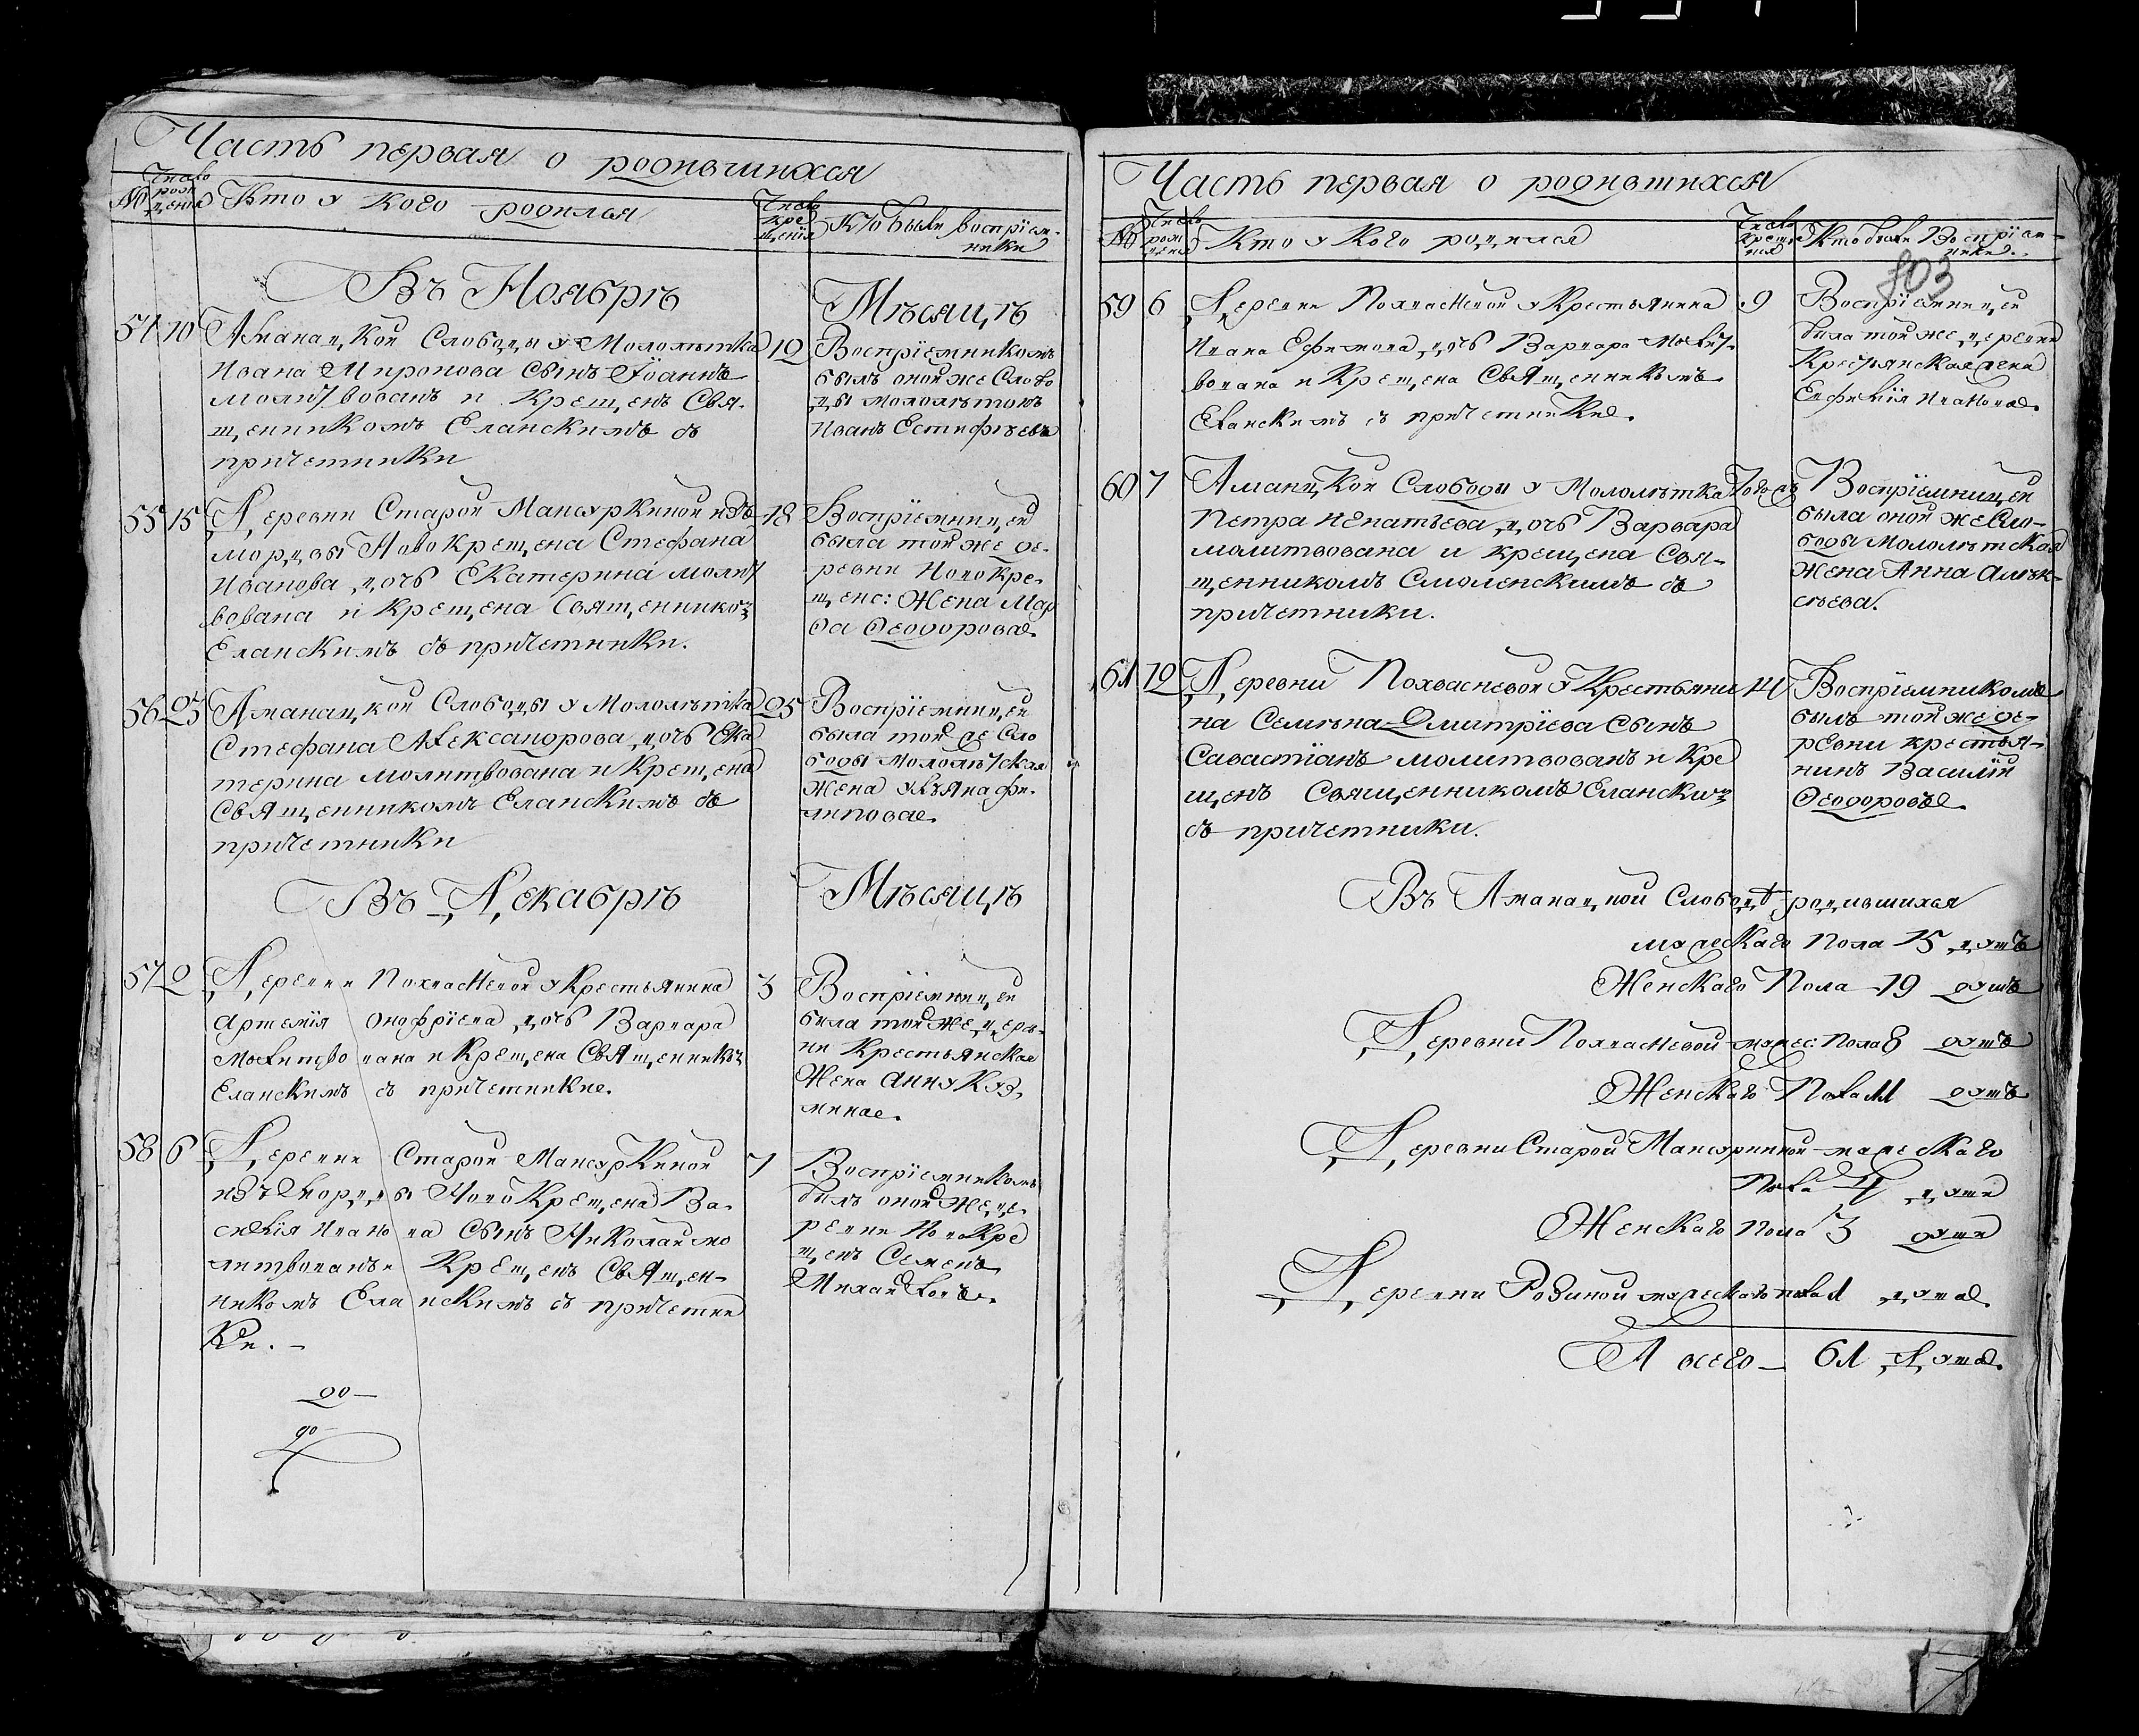 Часть первая о родившихся
№
Число рождения
Кто у кого родился
Число крещенія
Кто были воспріемники
Въ Ноябрѣ
Мѣсяцѣ
54
10
Аманацкой Слободы у Малолѣтка
Ивана Миронова сынъ Іоаннъ
молитвованъ и крещенъ Свя-
щенникомъ Еланскимъ съ
причетники
12
Воспріемникомъ
былъ оной же Слобо
ды малолѣтокъ
Иванъ Естифѣевъ
55
15
Деревни Старой Мансуркиной изъ
мордвы Новокрещена Стефана
Иванова дочь Екатерина молит
вована и крещена Священнико
Еланскимъ съ причетники.
18
Воспріемницей
была той же де-
ревни Новокре-
щенс: Жена Мар
ѳа Ѳеодорова.
56
23
Аманацкой Слободы у Малолѣтка
Стефана Александрова дочь Ека
терина молитвована и крещена
Священникомъ Еланскимъ съ
причетники
25
Воспріемницей
была той же Сло
боды Малолѣтская
Жена
Въ Декабрѣ
Мѣсяцѣ
57
2
Деревни Похвисневой у Крестьянина
Артемія Онофріева дочь Варвара
Молитвована и Крещена Священнико
Еланскимъ съ причетники.
3
Воспріемницей
была той же дерев-
ни Крестьянская
Жена Анна Куз-
мина.
58
6
Деревни Старой Мансуркиной
изъ Мордвы Новокрещена Ва-
силія Иванова Сынъ Николай мо
литвованъ и Крещенъ Священ-
никомъ Еланскимъ съ причетни
ки.
7
Воспріемникомъ
былъ оной же де-
ревни Новокре
щенъ Семенъ
Михайловъ.
Часть первая о родившихся
№
Число рожденія
Кто у кого родился
Число крещенія
Кто были Воспріемники.
803
59
6
Деревни Похвисневой у Крестьянина
Ивана Ефимова дочь Варвара Молит-
вована и Крещена Священникомъ
Еланскимъ съ причетники.
9
Воспріемницей
была той же деревни
Крестьянская жена
Ивановна.
60
7
Аманацкой Слободы у Малолѣтка
Петра Игнатьева дочь Варвара
молитвована и крещена Свя-
щенникомъ Смоленскимъ съ
причетники.
Воспріемницей
была оной же Сло-
боды Малолѣтская
Жена Анна Алек-
сѣева.
61
12
Деревни Похвасневой у Крестьяни
на Семена Дмитріева Сынъ
Савастіанъ молитвованъ и Кре
щенъ Священникомъ Еланским
съ причетники.
14
Воспріемникомъ
былъ той же де-
ревни крестья-
нинъ Василій
Ѳеодоровъ.
Въ Аманацкой Слободѣ родившихся
мужескаго Пола 15 душъ
Женскаго Пола 19 душъ
Деревни Похвасневой мужес: Пола 8 душъ
Женскаго Пола 11 душъ
Деревни Старой Мансуркиной мужескаго
Пола 4 души
Женскаго Пола 3 души
Деревни мужескаго пола 1 душа.
А всего 61 душа.